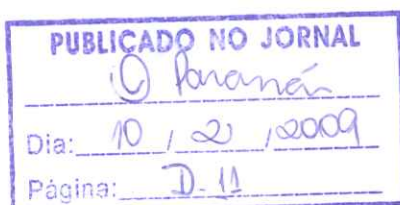 PUBLICADO NO JORNAL
O Paraná
Dia: 10 / 2 / 2009
Página: D-11